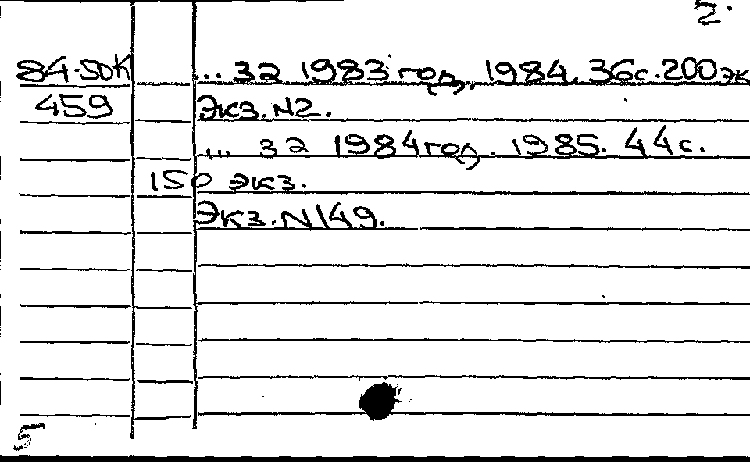 2.
84-50К ... за 1983 год, 1984. 36с. 200 эк
459 Экз. N2.
... за 1984 год. 1985. 44с.
150 экз.
Экз. N149.
5